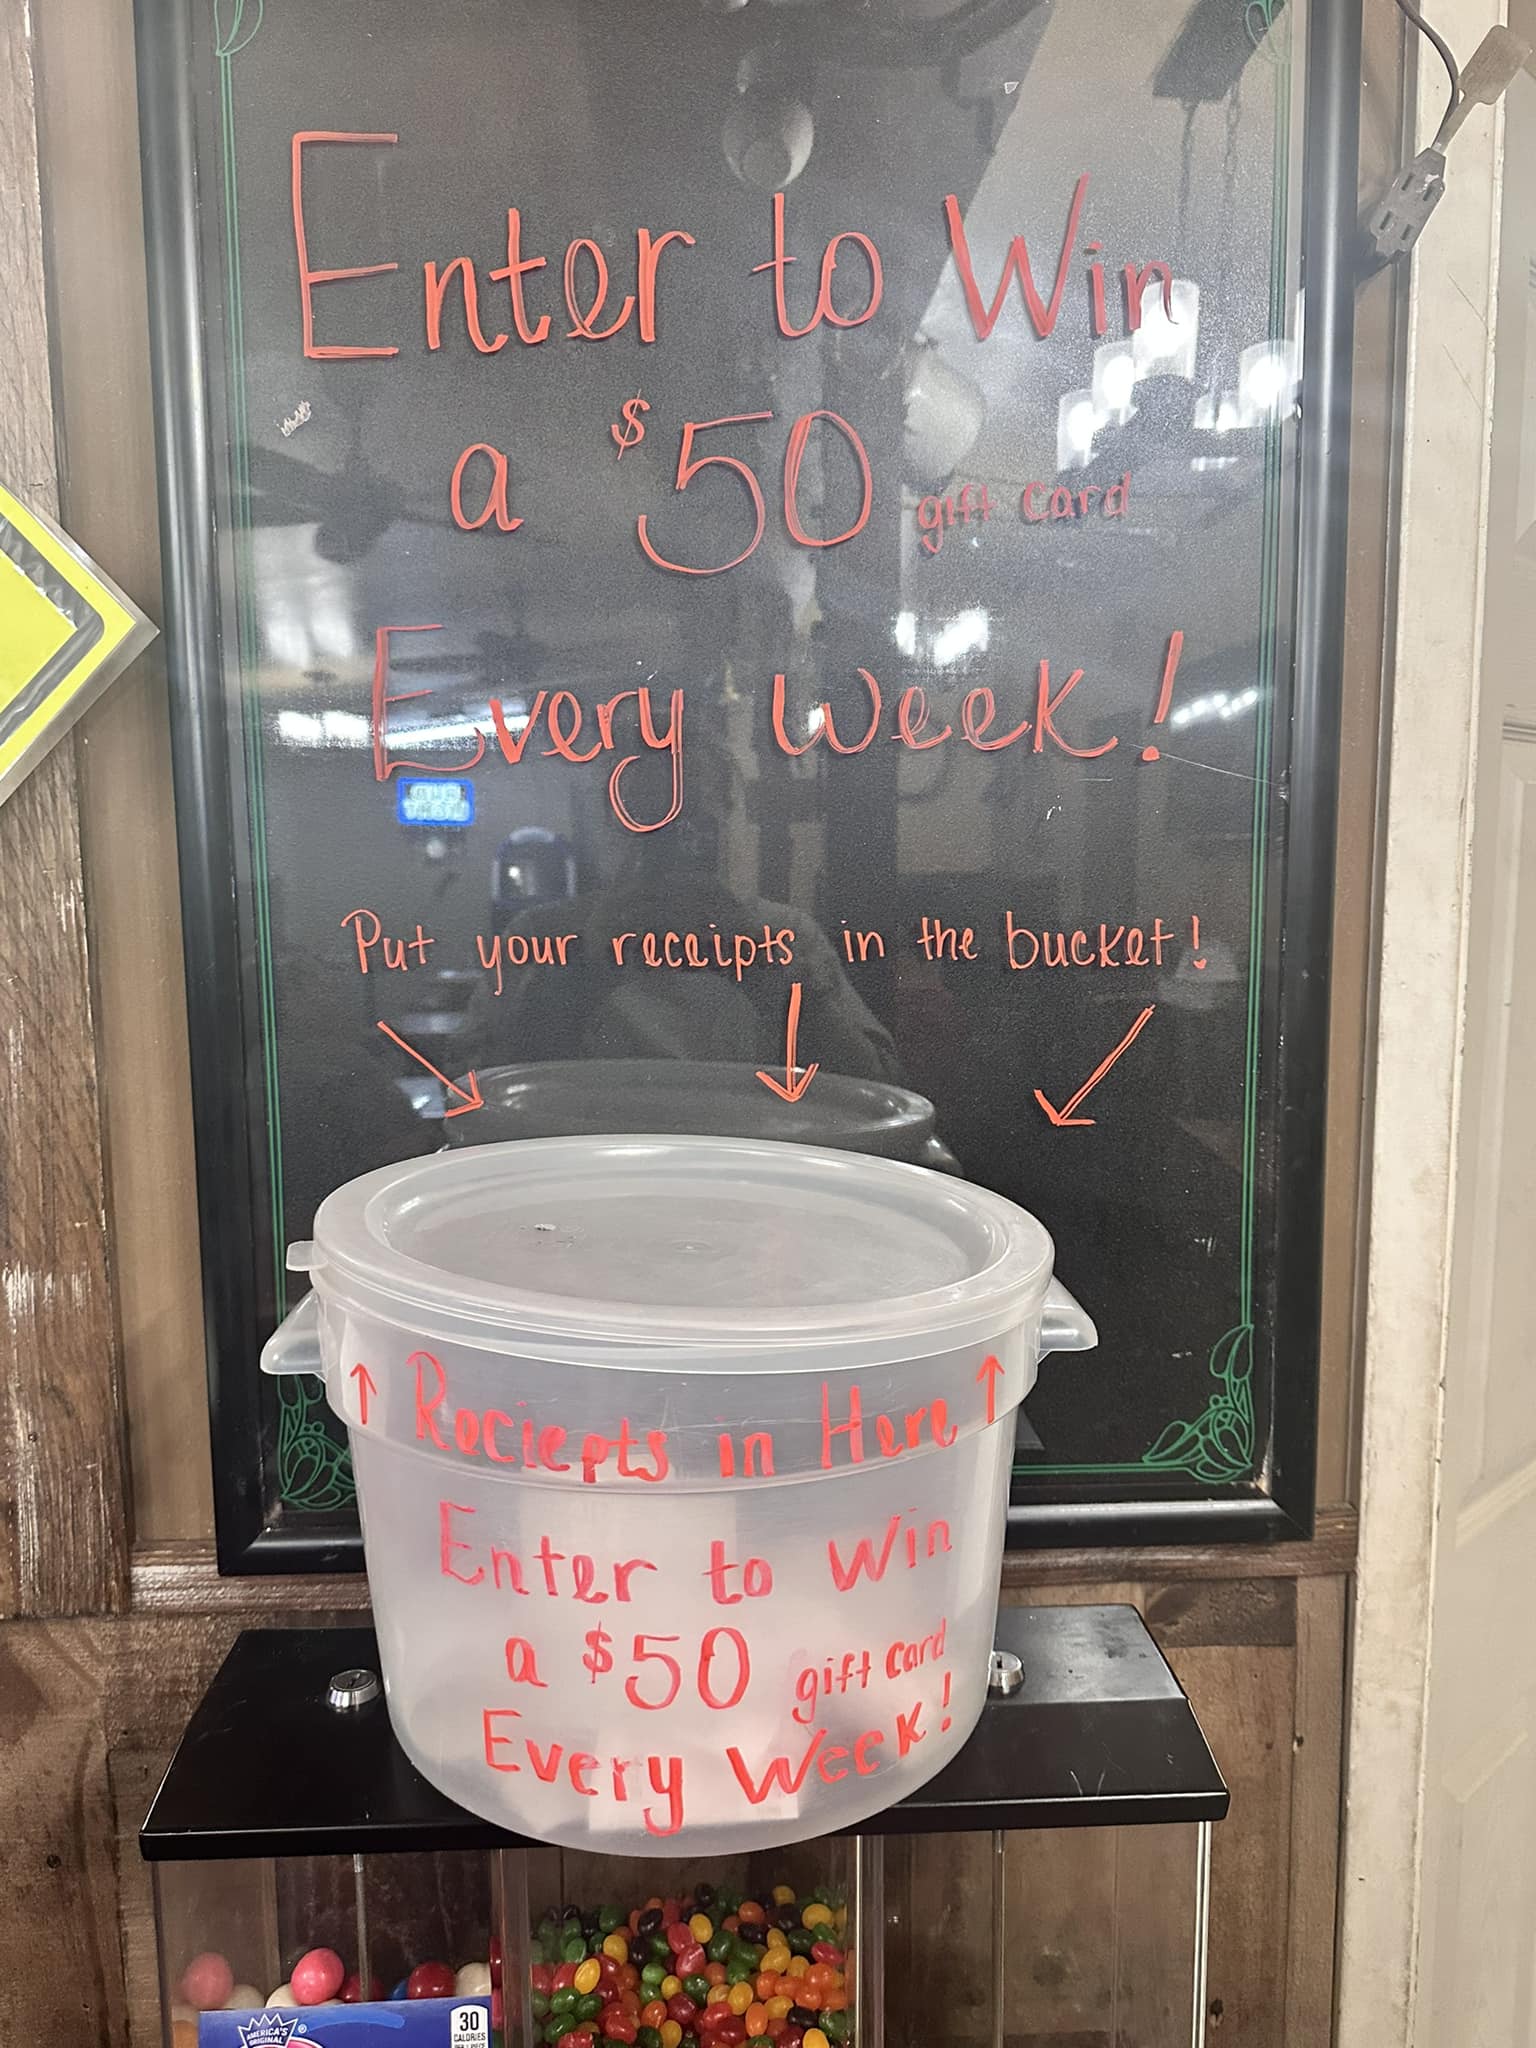 Enter to Win
a $50 gift card
Every Week!
Put your receipts in the bucket!
↑ Reciepts in Here ↑
Enter to Win
a $50 gift card
Every Week!
AMERICA'S
ORIGINAL
30
CALORIES